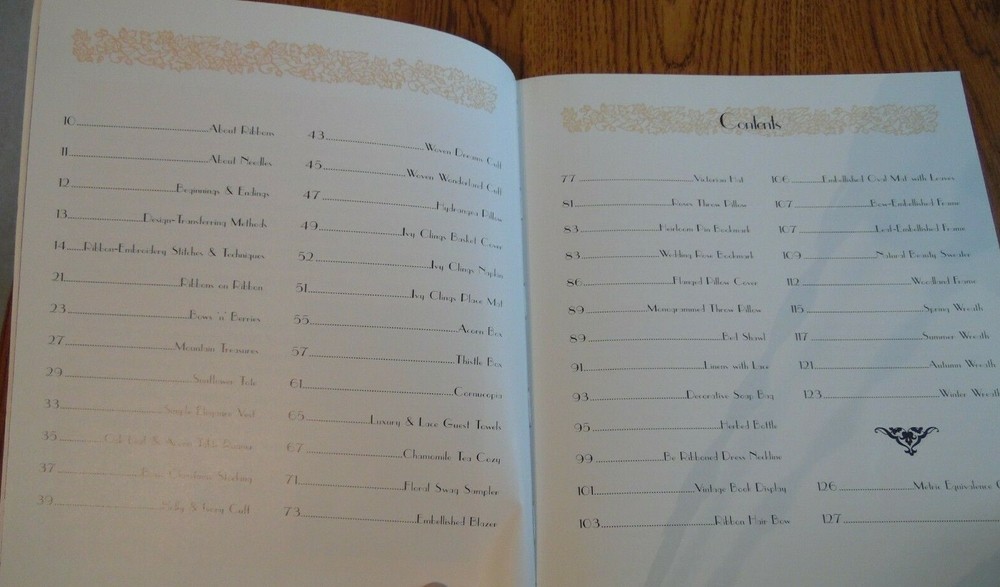 10 About Ribbons
11 About Needles
12 Beginnings & Endings
13 Design-Transferring Methods
14 Ribbon-Embroidery Stitches & Techniques
21 Ribbons on Ribbon
23 Bows 'n' Berries
27 Mountain Treasures
29 Sunflower Tote
33 Simple Elegance Vest
35 Oak Leaf & Acorn Table Runner
37 Stocking
39 Cuff
43 Woven Dreams Cuff
45 Woven Wonderland Cuff
47 Hydrangea Pillow
49 Ivy Clings Basket Cover
52 Ivy Clings Napkin
51 Ivy Clings Place Mat
55 Acorn Box
57 Thistle Box
61 Cornucopia
65 Luxury & Lace Guest Towels
67 Chamomile Tea Cozy
71 Floral Swag Sampler
73 Embellished Blazer
Contents
77 Victorian Hat
81 Roses Throw Pillow
83 Heirloom Pin Bookmark
83 Wedding Rose Bookmark
86 Flanged Pillow Cover
89 Monogrammed Throw Pillow
89 Bed Shawl
91 Linens with Lace
93 Decorative Soap Bag
95 Herbed Bottle
99 Be Ribboned Dress Neckline
101 Vintage Book Display
103 Ribbon Hair Bow
106 Embellished Oval Mat with Leaves
107 Bow-Embellished Frame
107 Leaf-Embellished Frame
109 Natural Beauty Sweater
112 Woodland Frame
115 Spring Wreath
117 Summer Wreath
121 Autumn Wreath
123 Winter Wreath
126 Metric Equivalence
127